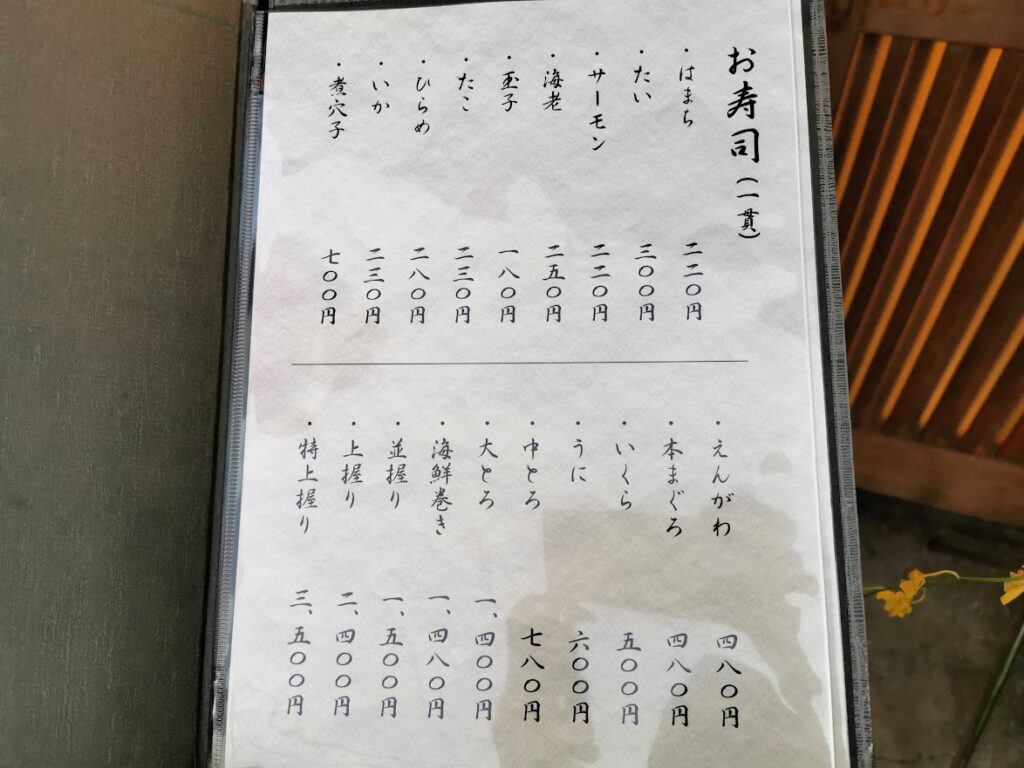 お寿司（一貫）
・はまち 二二〇円
・たい 三〇〇円
・サーモン 二二〇円
・海老 二五〇円
・玉子 一八〇円
・たこ 二三〇円
・ひらめ 二八〇円
・いか 二三〇円
・煮穴子 七〇〇円
・えんがわ 四八〇円
・本まぐろ 四八〇円
・いくら 五〇〇円
・うに 六〇〇円
・中とろ 七八〇円
・大とろ 一、四〇〇円
・海鮮巻き 一、四八〇円
・並握り 一、五〇〇円
・上握り 二、四〇〇円
・特上握り 三、五〇〇円